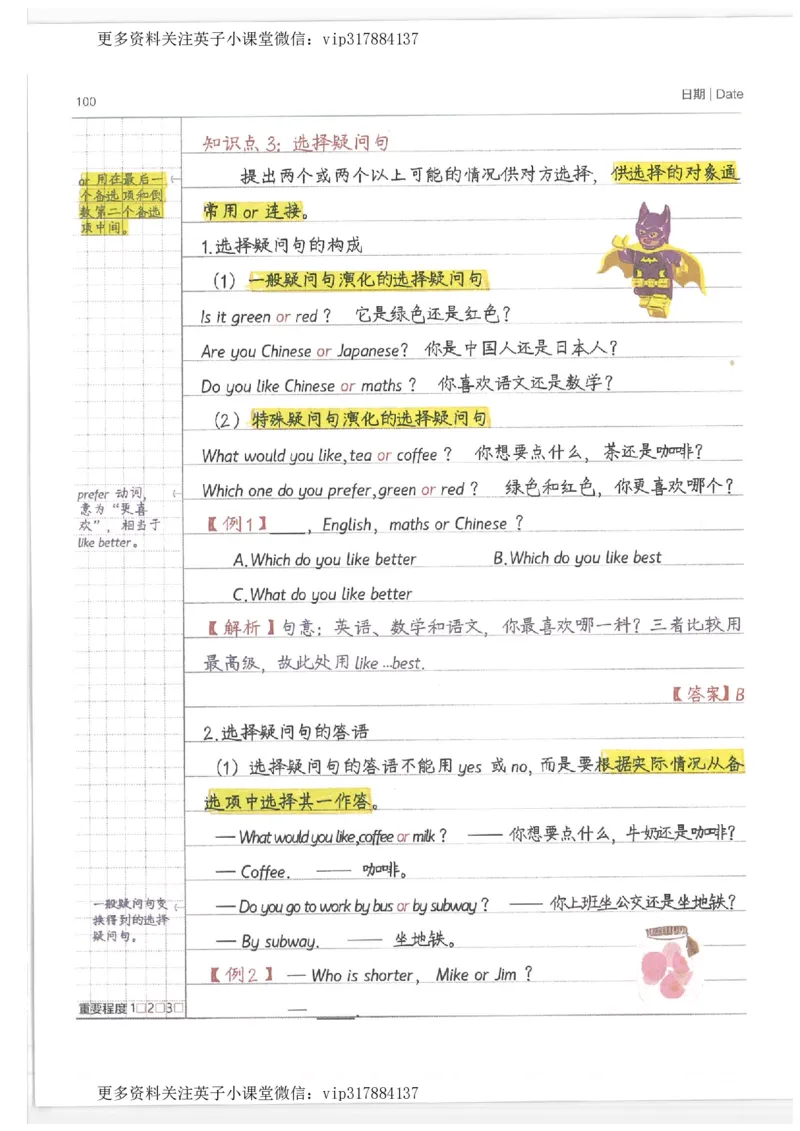 更多资料关注英子小课堂微信：vip317884137
100
日期 | Date
知识点 3：选择疑问句
提出两个或两个以上可能的情况供对方选择，供选择的对象通
常用 or 连接。
or 用在最后一
个备选项和倒
数第二个备选
项中间。
1.选择疑问句的构成
（1）一般疑问句演化的选择疑问句
Is it green or red？ 它是绿色还是红色？
Are you Chinese or Japanese？ 你是中国人还是日本人？
Do you like Chinese or maths？ 你喜欢语文还是数学？
（2）特殊疑问句演化的选择疑问句
What would you like,tea or coffee？ 你想要点什么，茶还是咖啡？
Which one do you prefer,green or red？ 绿色和红色，你更喜欢哪个？
prefer 动词，
意为“更喜
欢”，相当于
like better。
【例1】____，English，maths or Chinese？
A.Which do you like better B.Which do you like best
C.What do you like better
【解析】句意：英语、数学和语文，你最喜欢哪一科？三者比较用
最高级，故此处用 like …best.
【答案】B
2.选择疑问句的答语
（1）选择疑问句的答语不能用 yes 或 no，而是要根据实际情况从备
选项中选择其一作答。
— What would you like,coffee or milk？ —— 你想要点什么，牛奶还是咖啡？
— Coffee. —— 咖啡。
— Do you go to work by bus or by subway？ —— 你上班坐公交还是坐地铁？
— By subway. —— 坐地铁。
一般疑问句变
换得到的选择
疑问句。
【例2】— Who is shorter，Mike or Jim？
— ____.
重要程度 1□2□3□
更多资料关注英子小课堂微信：vip317884137